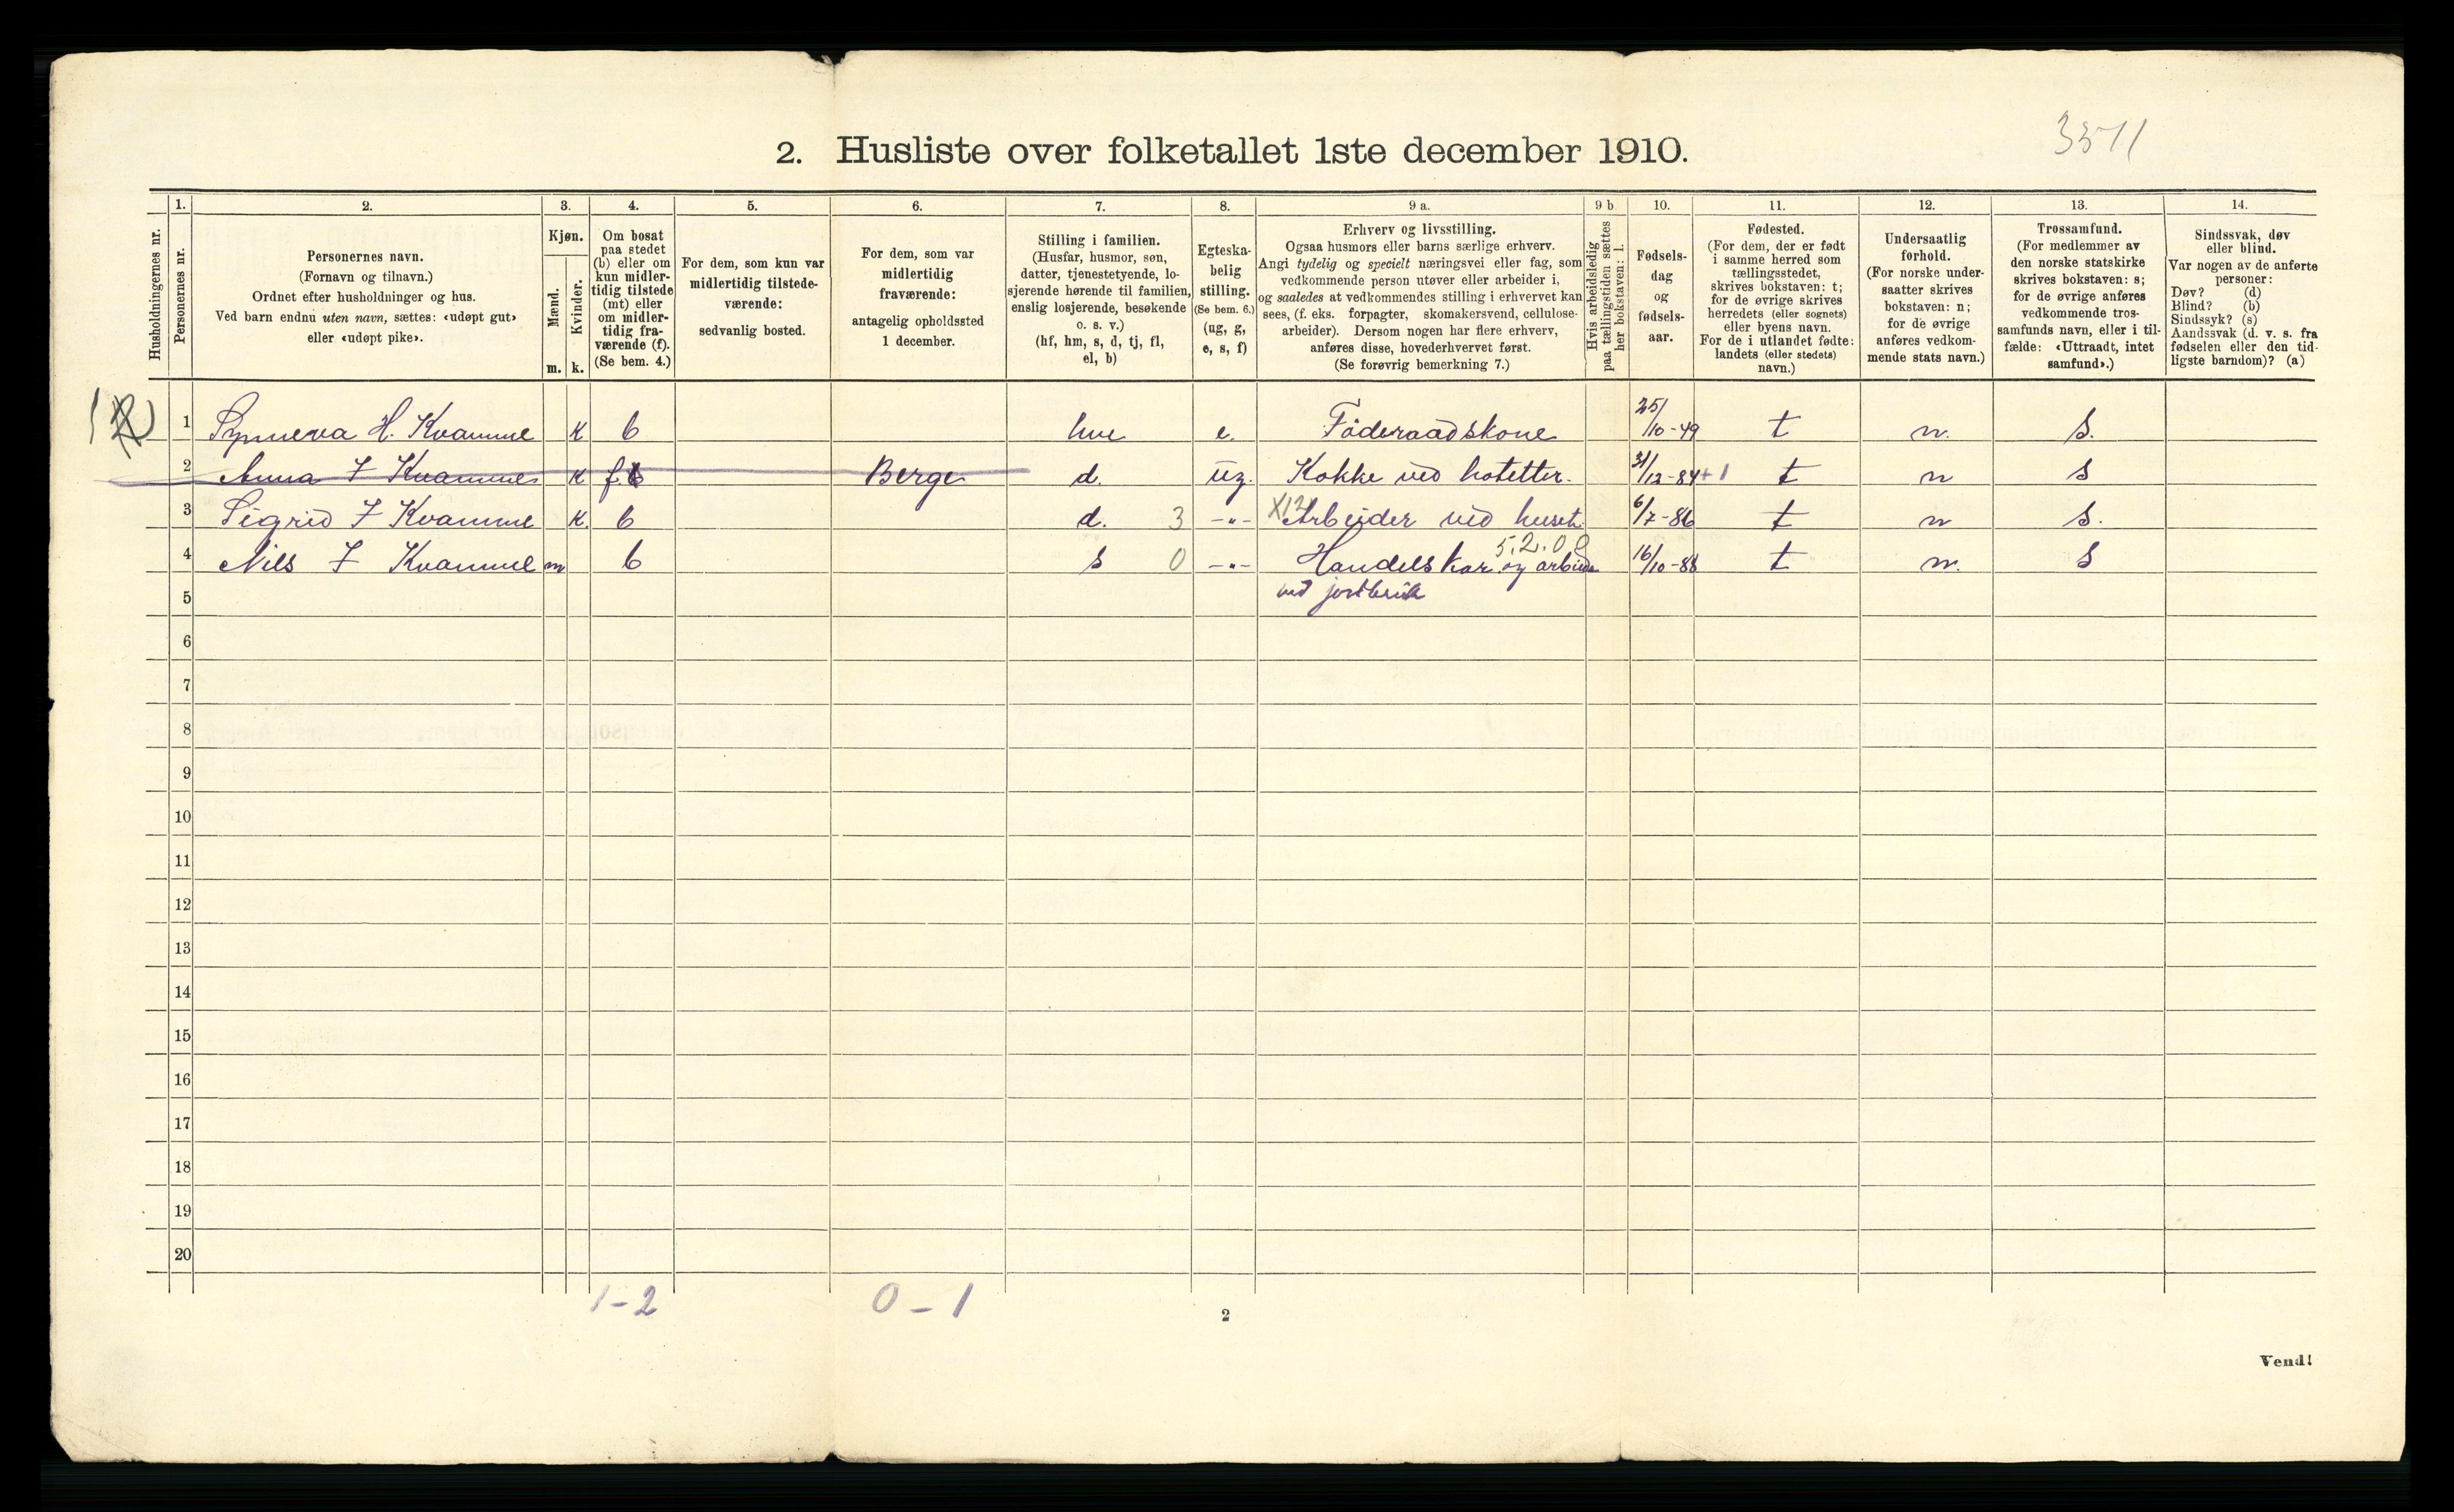 3571
2. Husliste over folketallet 1ste december 1910.
Husholdningernes nr.
1.
Personernes nr.
2.
Personernes navn.
(Fornavn og tilnavn.)
Ordnet efter husholdninger og hus.
Ved barn endnu uten navn, sættes: «udøpt gut»
eller «udøpt pike».
3.
Kjøn.
Mænd.
Kvinder.
m. k.
4.
Om bosat
paa stedet
(b) eller om
kun midler-
tidig tilstede
(mt) eller
om midler-
tidig fra-
værende (f).
(Se bem. 4.)
5.
For dem, som kun var
midlertidig tilstede-
værende:
sedvanlig bosted.
6.
For dem, som var
midlertidig
fraværende:
antagelig opholdssted
1 december.
7.
Stilling i familien.
(Husfar, husmor, søn,
datter, tjenestetyende, lo-
sjerende hørende til familien,
enslig losjerende, besøkende
o. s. v.)
(hf, hm, s, d, tj, fl,
el, b)
8.
Egteska-
belig
stilling.
(Se bem. 6.)
(ug, g,
e, s, f)
9 a.
Erhverv og livsstilling.
Ogsaa husmors eller barns særlige erhverv.
Angi tydelig og specielt næringsvei eller fag, som
vedkommende person utøver eller arbeider i,
og saaledes at vedkommendes stilling i erhvervet kan
sees, (f. eks. forpagter, skomakersvend, cellulose-
arbeider). Dersom nogen har flere erhverv,
anføres disse, hovederhvervet først.
(Se forøvrig bemerkning 7.)
9 b
Hvis arbeidsledig
paa tællingstiden sættes
her bokstaven: l.
10.
Fødsels-
dag
og
fødsels-
aar.
11.
Fødested.
(For dem, der er født
i samme herred som
tællingsstedet,
skrives bokstaven: t;
for de øvrige skrives
herredets (eller sognets)
eller byens navn.
For de i utlandet fødte:
landets (eller stedets)
navn.)
12.
Undersaatlig
forhold.
(For norske under-
saatter skrives
bokstaven: n;
for de øvrige
anføres vedkom-
mende stats navn.)
13.
Trossamfund.
(For medlemmer av
den norske statskirke
skrives bokstaven: s;
for de øvrige anføres
vedkommende tros-
samfunds navn, eller i til-
fælde: «Uttraadt, intet
samfund».)
14.
Sindssvak, døv
eller blind.
Var nogen av de anførte
personer:
Døv? (d)
Blind? (b)
Sindssyk? (s)
Aandssvak (d. v. s. fra
fødselen eller den tid-
ligste barndom)? (a)
1 Synneva H. Kvamme K b hm e. Föderaadskone 25/10-49 t n. S.
2 Anna I Kvamme K f. Berge d. ug. Kokke ved hoteller. 31/12-84 +1 t n S
3 Sigrid I Kvamme K. b d. 3 -"- X12 Arbeider ved huset 6/7-86 t n S.
5.2.00
4 Nils I Kvamme m b s 0 -"- Handelskar og arbeide 16/10-88 t n. S
5 ved jordbruk
6
7
8
9
10
11
12
13
14
15
16
17
18
19
20
1-2 0-1
2
Vend!